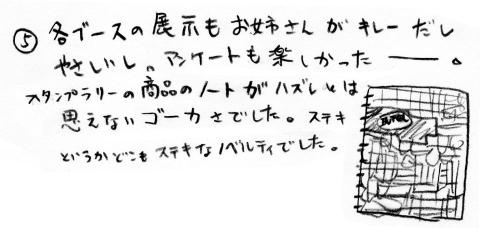 ⑤ 各ブースの展示もお姉さんがキレーだし
やさしいし。アンケートも楽しかったーー。
スタンプラリーの商品のノートがハズレとは
思えないゴーカさでした。ステキ
というかどこもステキなノベルティでした。